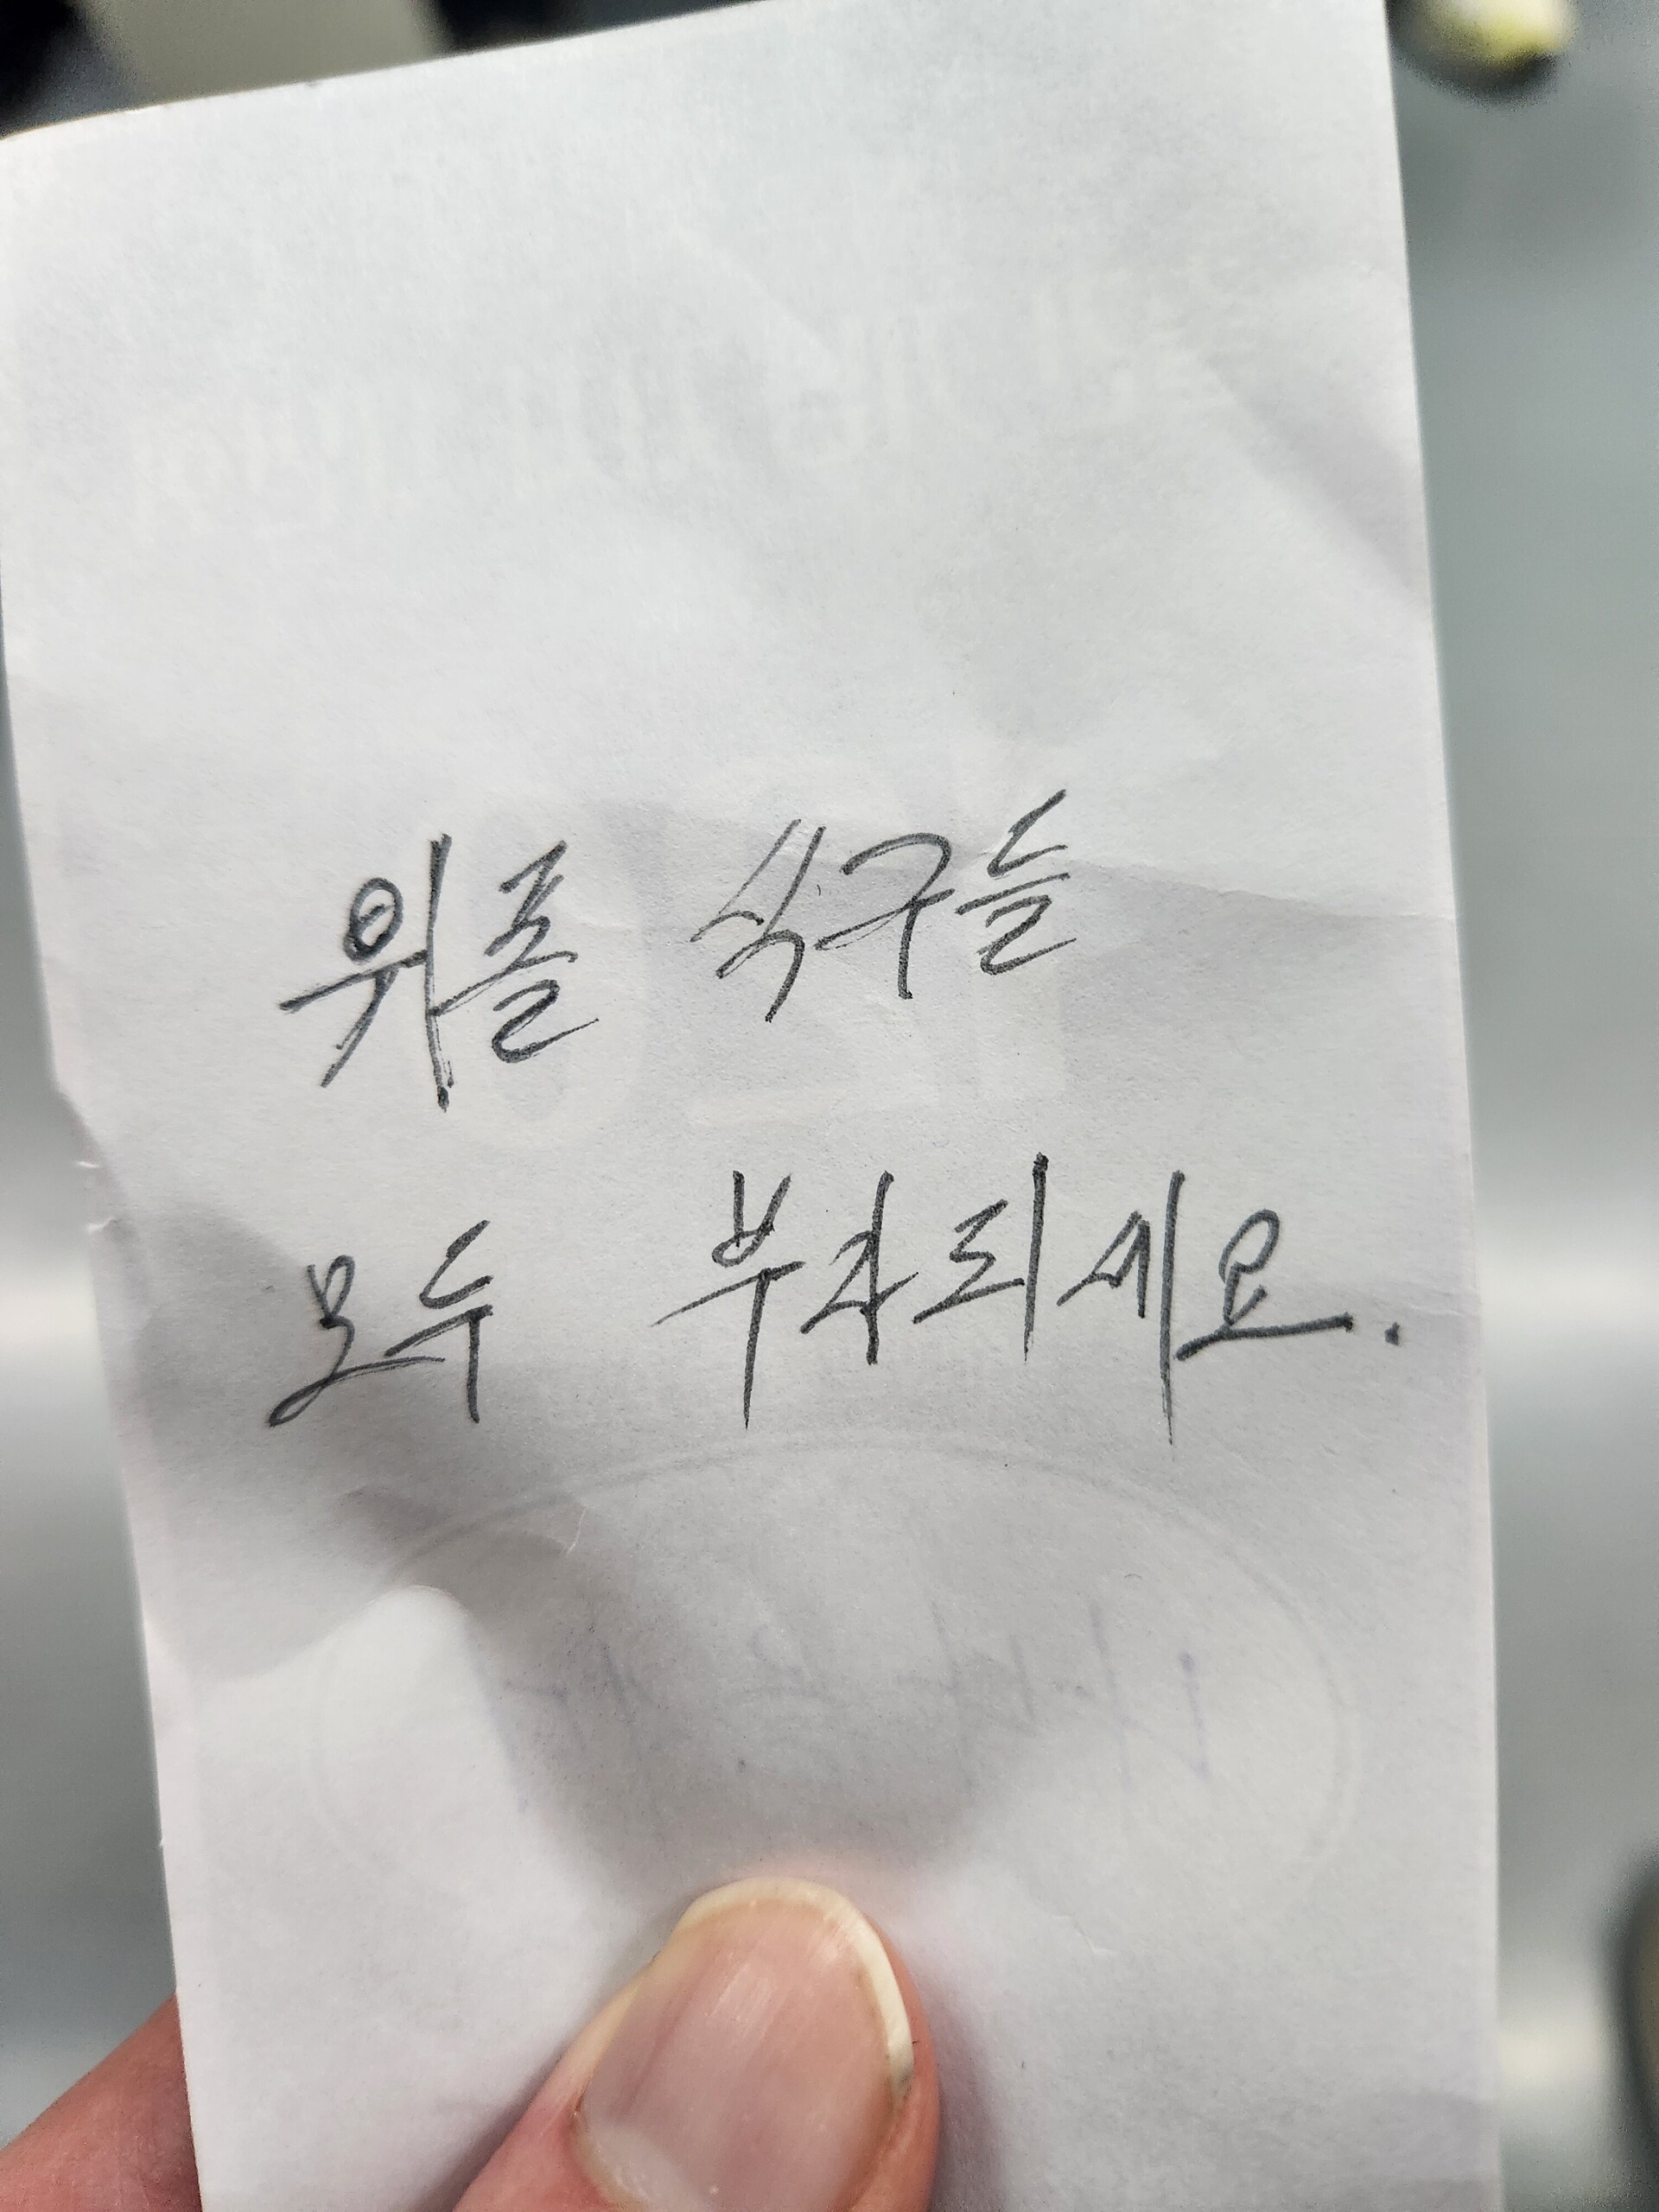 위폴 식구들
모두 부자되세요.